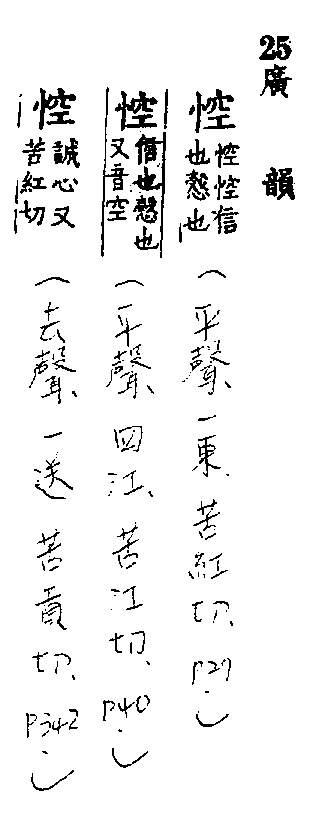 25廣韻
悾悾悾信也慤也(平聲、一東、苦紅切、P27.)
悾信也慤也又音空(平聲、四江、苦江切、P40.)
悾誠心又苦紅切(去聲、一送苦貢切、P342.)